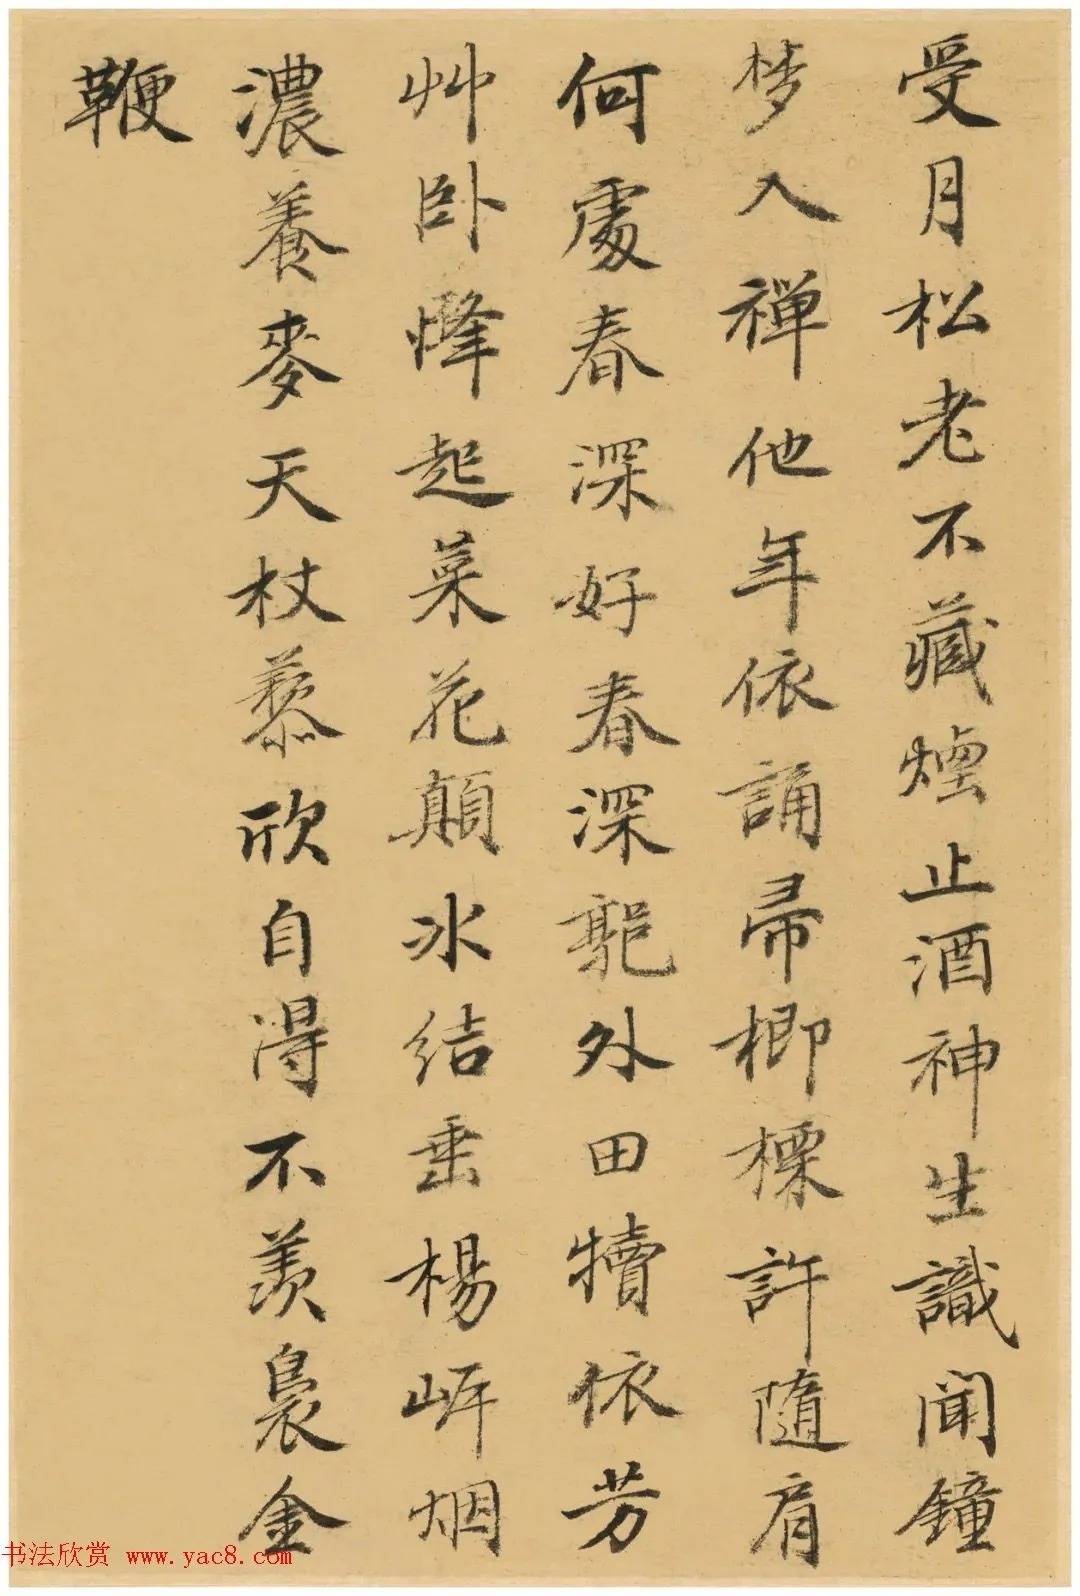 受月松老不藏煙止酒神生識聞鐘
梦入禅他年依誦帚楖㮚許隨肩
何處春深好春深郭外田犢依芳
艸卧㷨起菜花顛冰結垂楊岸烟
濃養麥天杖藜欣自得不羨裊金
鞭
书法欣赏 www.yac8.com